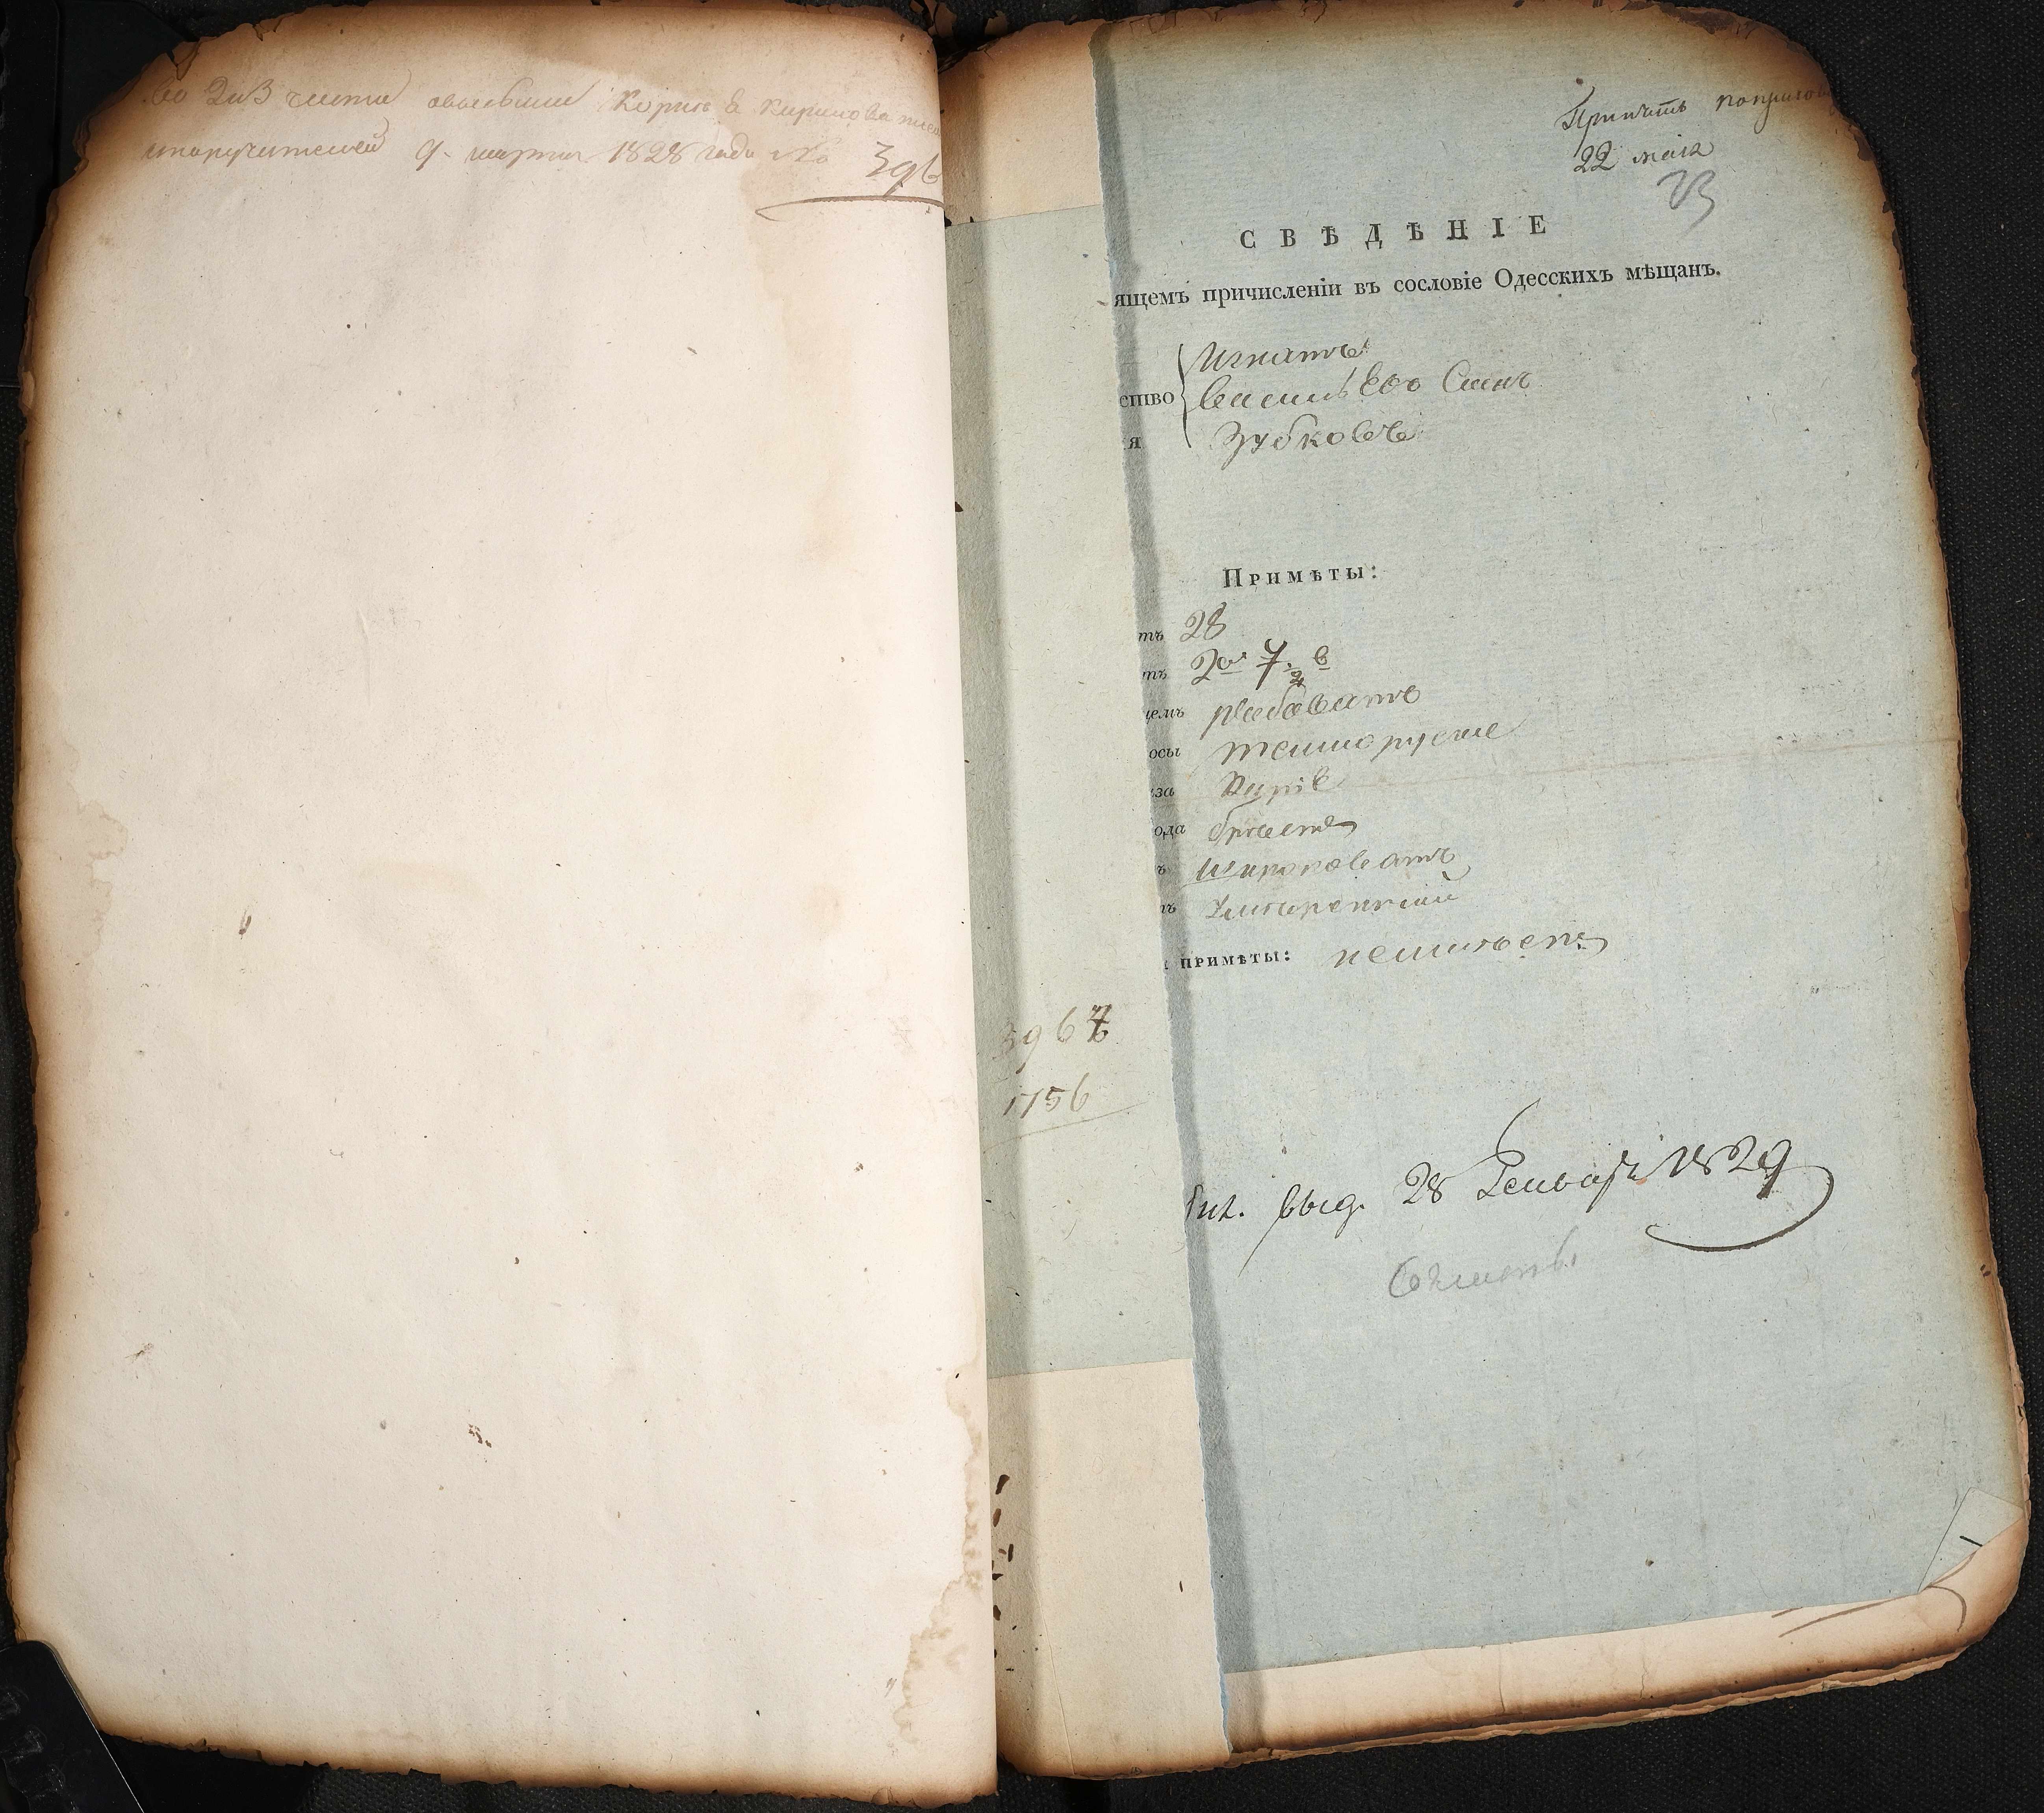 во 2 и 3 части
поручителей 9 марта 1828 года № 396
Причтъ
22 мая
СВѢДѢНІЕ
ящемъ причисленіи въ сословіе Одесскихъ мѣщанъ.
Игнатъ
ство Васильевъ Сынъ
я Зубковъ
Примѣты:
тъ 28
тъ 2 ар 7 1/2 в
цемъ рябоватъ
осы темнорусые
за каріе
ода брѣетъ
ъ широковатъ
ъ умѣренный
примѣты: неимѣетъ
3967
1756
Бил. выд. 28 Генваря 1829